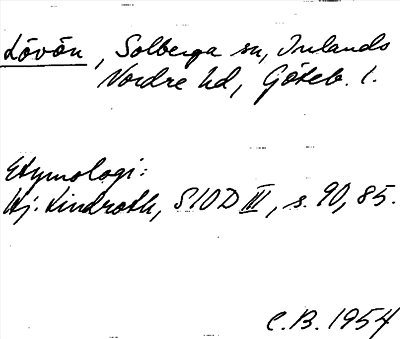 Lövön, Solberga sn, Inlands
Nordre hd, Göteb. l.
Etymologi:
Hj. Lindroth, SIOD III, s. 90, 85.
C.B. 1954